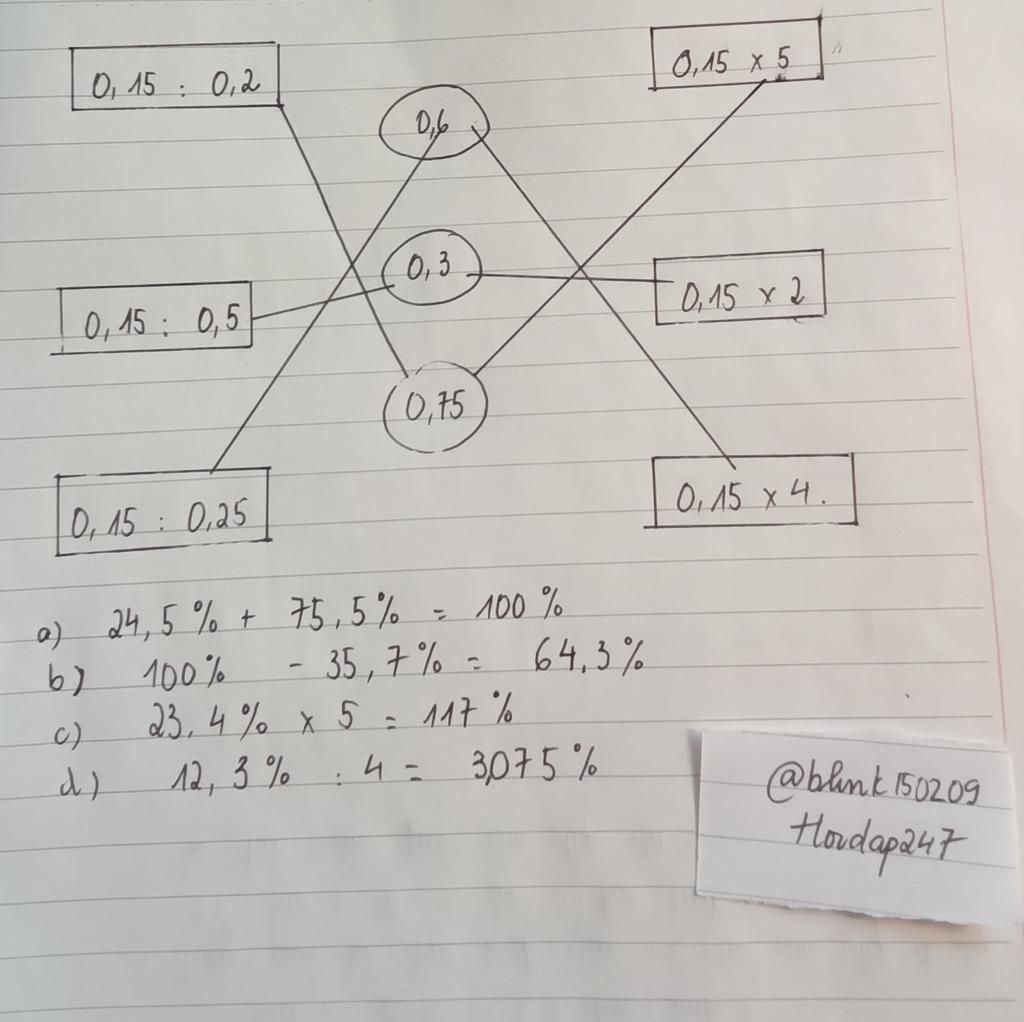 0,15 : 0,2
0,15 x 5
0,6
0,3
0,15 : 0,5
0,15 x 2
0,75
0,15 : 0,25
0,15 x 4.
a) 24,5% + 75,5% = 100%
b) 100% - 35,7% = 64,3%
c) 23,4% x 5 = 117%
d) 12,3% : 4 = 3,075%
@blink150209
Hoidap247